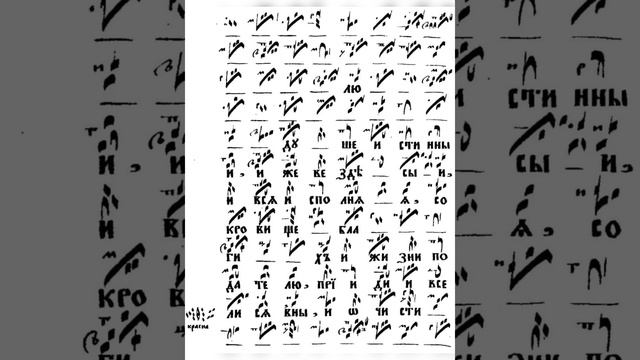 лю
ду ше и сти нны
и, и же ве здѣ сы и,
и всѧ и спо лнѧ ѧ, со
кро ви ще бла
ги хъ и жи зни по
да те лю, прї и ди и все
ли сѧ вны, и ѡ чи сти